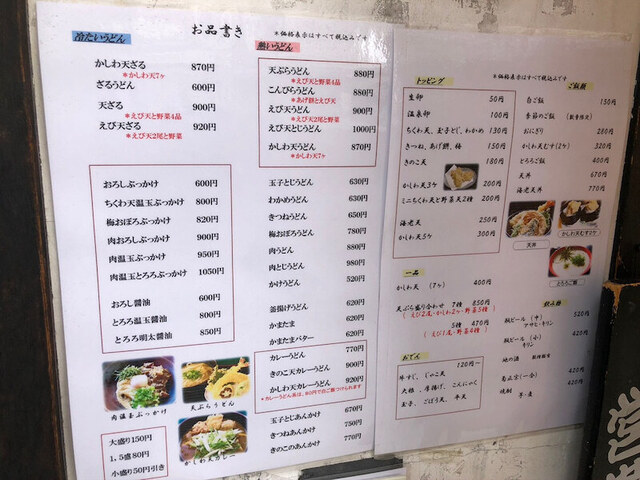 お品書き
＊価格表示はすべて税込みです
冷たいうどん
かしわ天ざる 870円
＊かしわ天7ヶ
ざるうどん 600円
天ざる 900円
＊えび天と野菜4品
えび天ざる 920円
＊えび天2尾と野菜
おろしぶっかけ 600円
ちくわ天温玉ぶっかけ 800円
梅おぼろぶっかけ 820円
肉おろしぶっかけ 900円
肉温玉ぶっかけ 950円
肉温玉とろろぶっかけ 1050円
おろし醤油 600円
とろろ温玉醤油 800円
とろろ明太醤油 850円
肉温玉ぶっかけ
天ぷらうどん
かしわ天カレー
大盛り150円
1，5盛80円
小盛り50円引き
熱いうどん
天ぷらうどん 880円
＊えび天と野菜4品
こんぴらうどん 880円
＊あげ餅とえび天
えび天うどん 900円
＊えび天2尾と野菜
えび天とじうどん 1000円
かしわ天うどん 870円
＊かしわ天7ヶ
玉子とじうどん 630円
わかめうどん 630円
きつねうどん 650円
梅おぼろうどん 780円
肉うどん 880円
肉とじうどん 980円
かけうどん 520円
釜揚げうどん 620円
かまたま 620円
かまたまバター 680円
カレーうどん 770円
きのこ天カレーうどん 900円
かしわ天カレーうどん 920円
＊カレーうどん類は、80円で白ご飯つけられます
玉子とじあんかけ 670円
きつねあんかけ 750円
きつねのこあんかけ 770円
＊価格表示はすべて税込みです
トッピング
生卵 50円
温泉卵 100円
ちくわ天、玉子とじ、わかめ 130円
きつね、あげ餅、梅 150円
きのこ天 180円
かしわ天3ヶ 200円
ミニちくわ天と野菜天2種 200円
海老天 250円
かしわ天5ヶ 300円
ご飯類
白ご飯 150円
季節のご飯
おにぎり 280円
かしわ天むす(2ヶ) 320円
とろろご飯 400円
天丼 670円
海老天丼 770円
かしわ天むす2ヶ
天丼
とろろご飯
一品
かしわ天 (7ヶ) 400円
天ぷら盛り合わせ 7種 850円
(えび2尾・かしわ2ヶ・野菜5種)
5種 470円
(えび1尾・野菜4種)
おでん
120円〜
牛すじ、じゃこ天
大根、厚揚げ、こんにゃく
玉子、ごぼう天、平天
飲み物
瓶ビール (中) 520円
アサヒ・キリン
瓶ビール (小) 420円
キリン
地の酒
420円
焼酎 芋・麦 420円